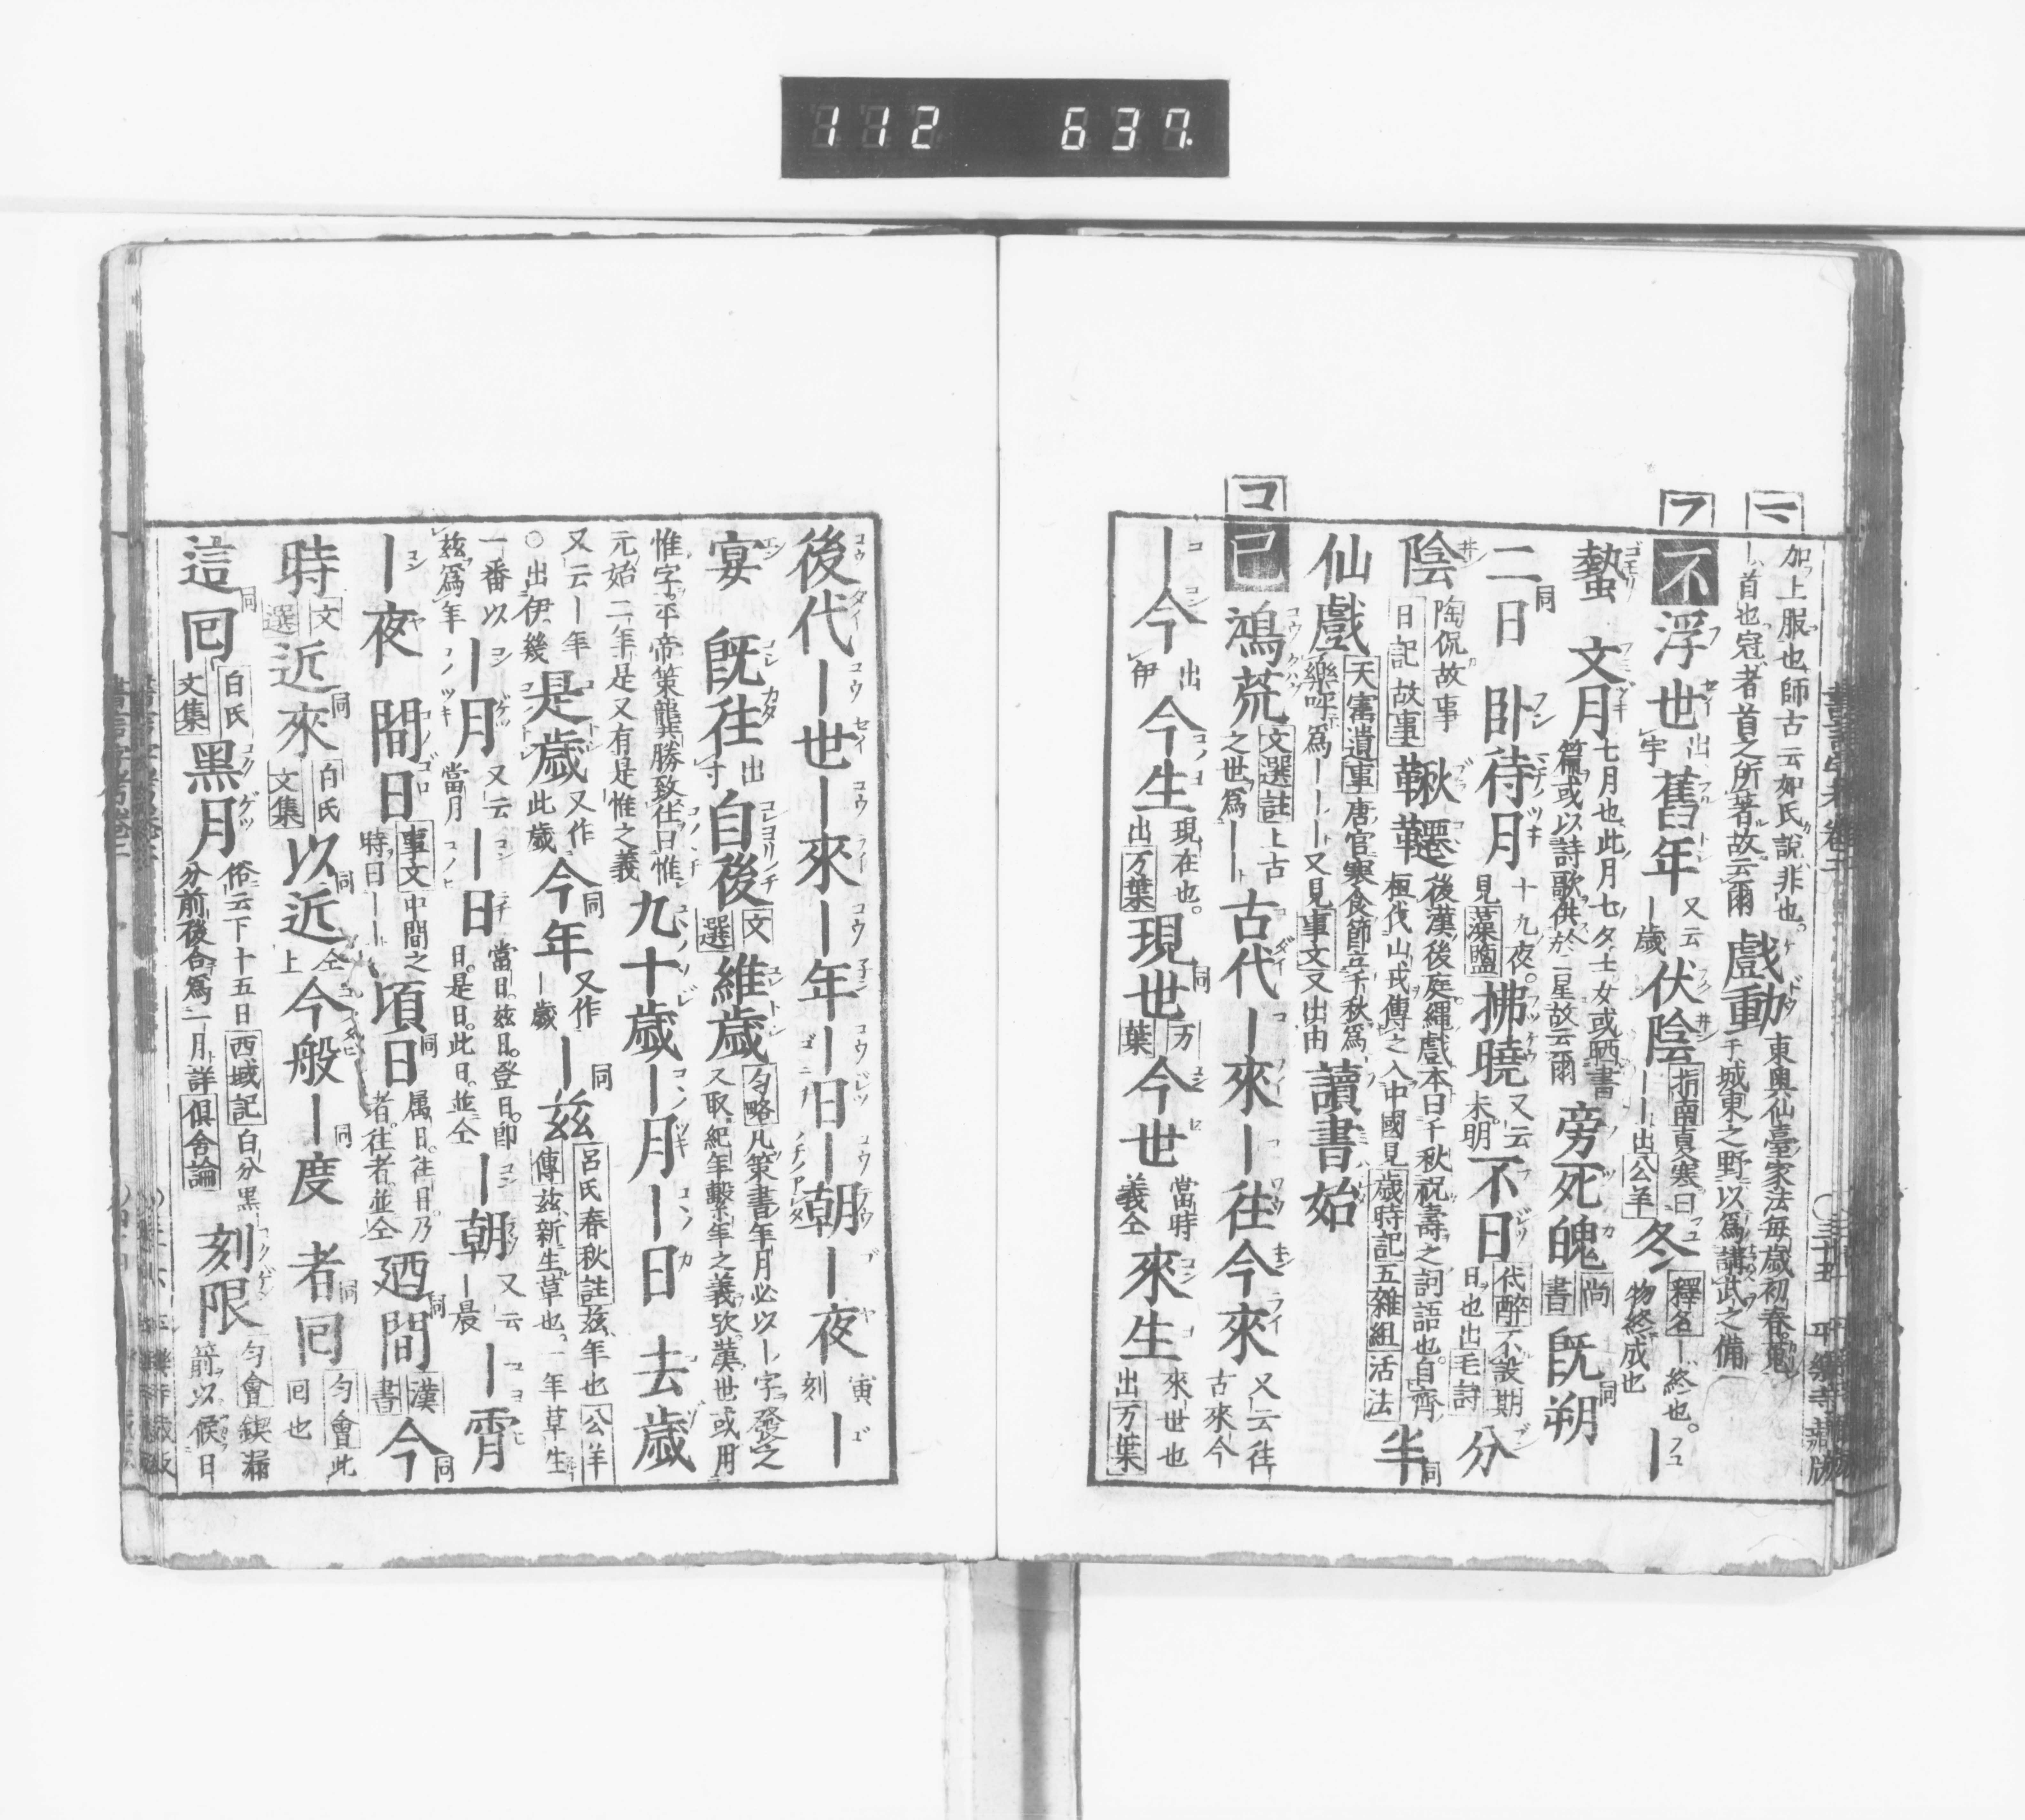 112 637.
加上服也師古云如氏說非也。
｜首也冠者首之所著故云爾 戲動 東奧仙臺家法每歲初春蒐
于城東之野以爲講武之備
フ
不 浮世 出宇 舊年 又云｜歲 伏陰 ｜｜出公羊 指南夏寒曰 冬 釋名｜終也。物終成也 ｜
蟄 文月 七月也此月七夕士女或晒書篇或以詩歌供於二星故云爾 旁死魄 尚書 既朔 同
二日 同 臥待月 十九夜。見藻鹽 拂曉 又云未明 不日 代醉不設期日也出毛詩 分
陰 陶侃故事 日記故事 鞦韆 後漢後庭繩戲本曰千秋祝壽之詞語也。自齊桓伐山戎傳之入中國見歲時記五雜組活法 半
仙戲 天寶遺事唐宮寒食節立千秋爲樂呼爲｜｜又見事文又出由 讀書始
コ
己 鴻荒 文選註上古之世爲｜｜ 古代 ｜來 ｜往今來 又云往古來今
｜今 出伊 今生 現在也。出万葉 現世 同 万葉 今世 當時義仝 來生 來世也出万葉
後代 ｜世 ｜來 ｜年 ｜日 ｜朝 ｜夜 寅刻 ｜
宴 既往 出寸 自後 文選 維歲 匀略凡策書年月必以｜字發之又取紀年繫年之義欤漢世或用
惟字平帝策龔勝致仕曰惟
元始二年是又有是惟之義 九十歲 ｜月 ｜日 去歲
又云｜年
○出伊幾 是歲 又作此歲 今年 同 又作｜歲 ｜茲 同 呂氏春秋註茲年也公羊傳茲新生草也。一年草生
一番以
茲爲年 ｜月 又云當月 ｜日 當日。茲日。登日。卽日。是日。此日。並仝 ｜朝 又云｜晨 ｜霄
｜夜 間日 事文中間之時曰｜｜ 頃日 同 属日。往日。乃者。往者。並仝 廼間 同 漢書 今 同
時 文選 近來 同 白氏文集 以近 同 仝上 今般 ｜度 同 者囘 同 匀會此囘也
這囘 同 白氏文集 黑月 俗云下十五日西域記白分黑分前後合爲一月詳俱舍論 刻限 匀會鍥漏箭以候日